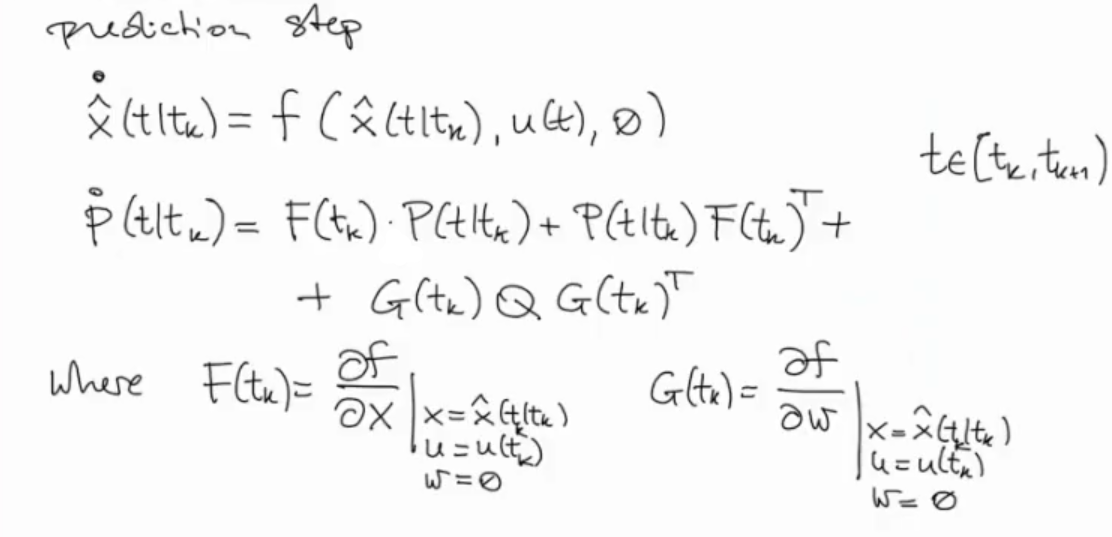 prediction step
\dot{\hat{x}}(t|t_k) = f(\hat{x}(t|t_k), u(t), ∅)
t∈[t_k, t_{k+1})
\dot{P}(t|t_k) = F(t_k)·P(t|t_k) + P(t|t_k) F(t_k)^T +
+ G(t_k) Q G(t_k)^T
where F(t_k) = ∂f/∂x |_{x=\hat{x}(t_k|t_k), u=u(t_k), w=∅} G(t_k) = ∂f/∂w |_{x=\hat{x}(t_k|t_k), u=u(t_k), w=∅}